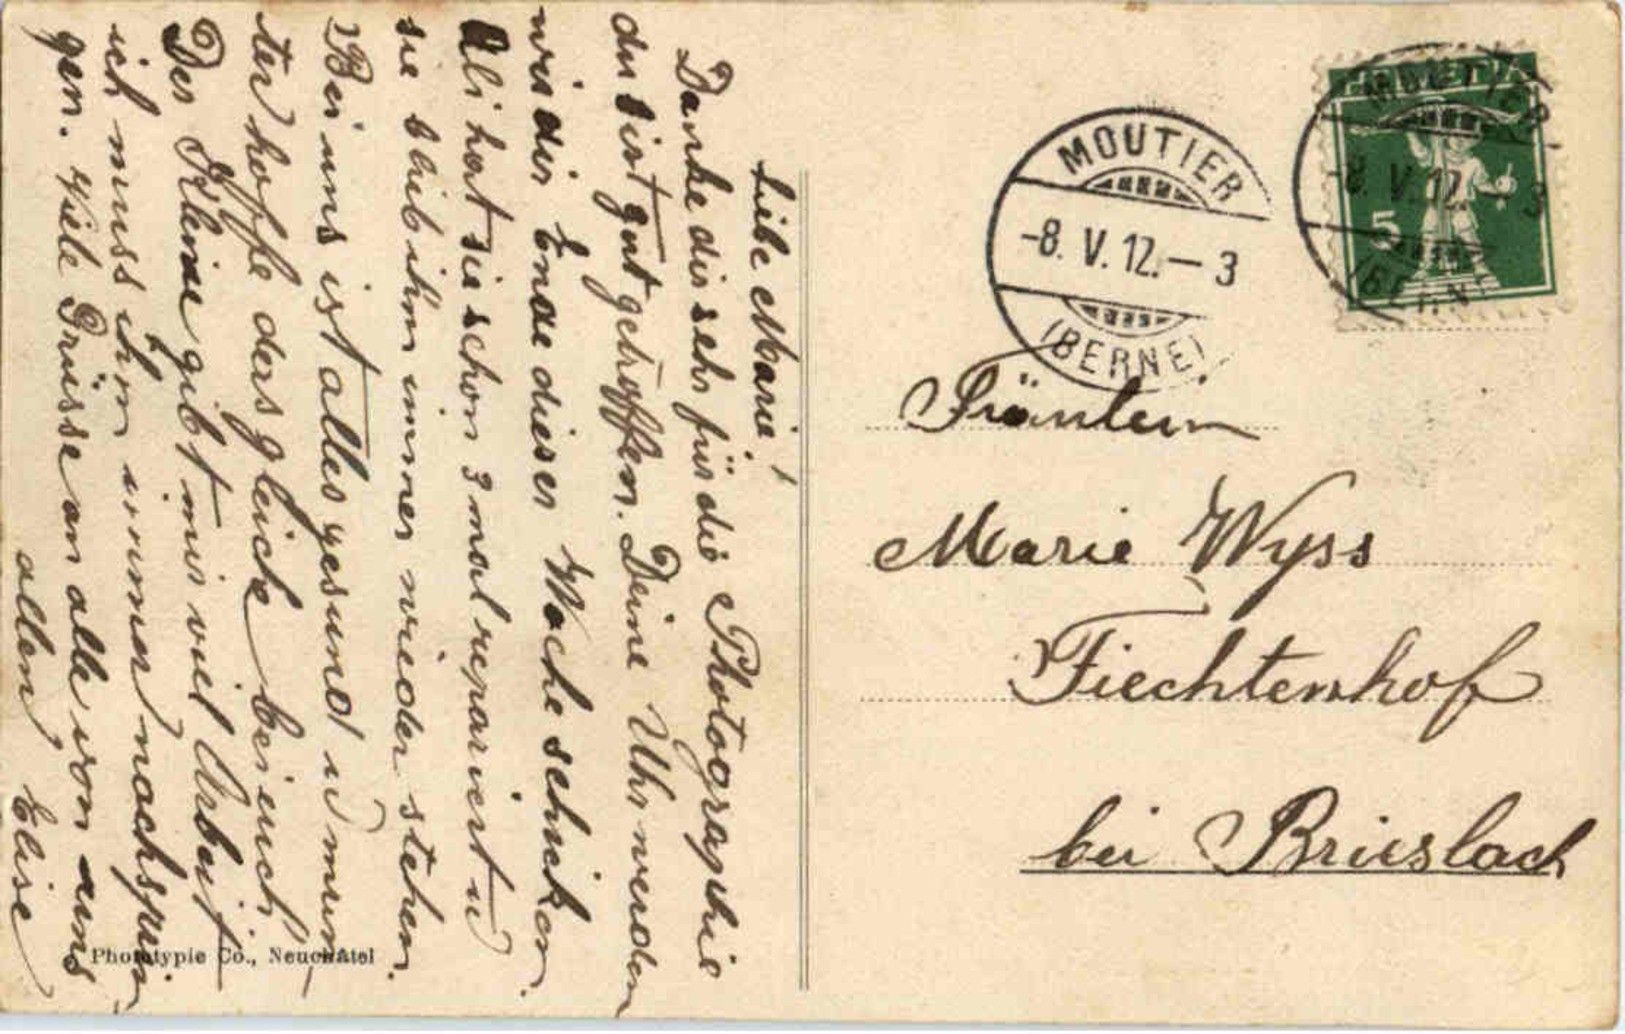 Liebe Marie!
Danke dir sehr für die Photographie
du bist gut getroffen. Deine Uhr werden
wir dir Ende dieser Woche schicken.
Ali hat sie schon 3 mal repariert u
sie blieb ihm immer wieder stehen.
Bei uns ist alles gesund u mun
ter hoffe das gleiche bei euch
Der Kleine gibt mir viel Arbeit
ich muss ihm immer nachsprin
gen. Viele Grüsse an alle von uns
allen Elise
Phototypie Co., Neuchâtel
MOUTIER
-8. V. 12. – 3
(BERNE)
HELVETIA
5
MOUTIER
-8. V. 12. – 3
(BERNE)
Fräulein
Marie Wyss
Fiechtenhof
bei Brieslach